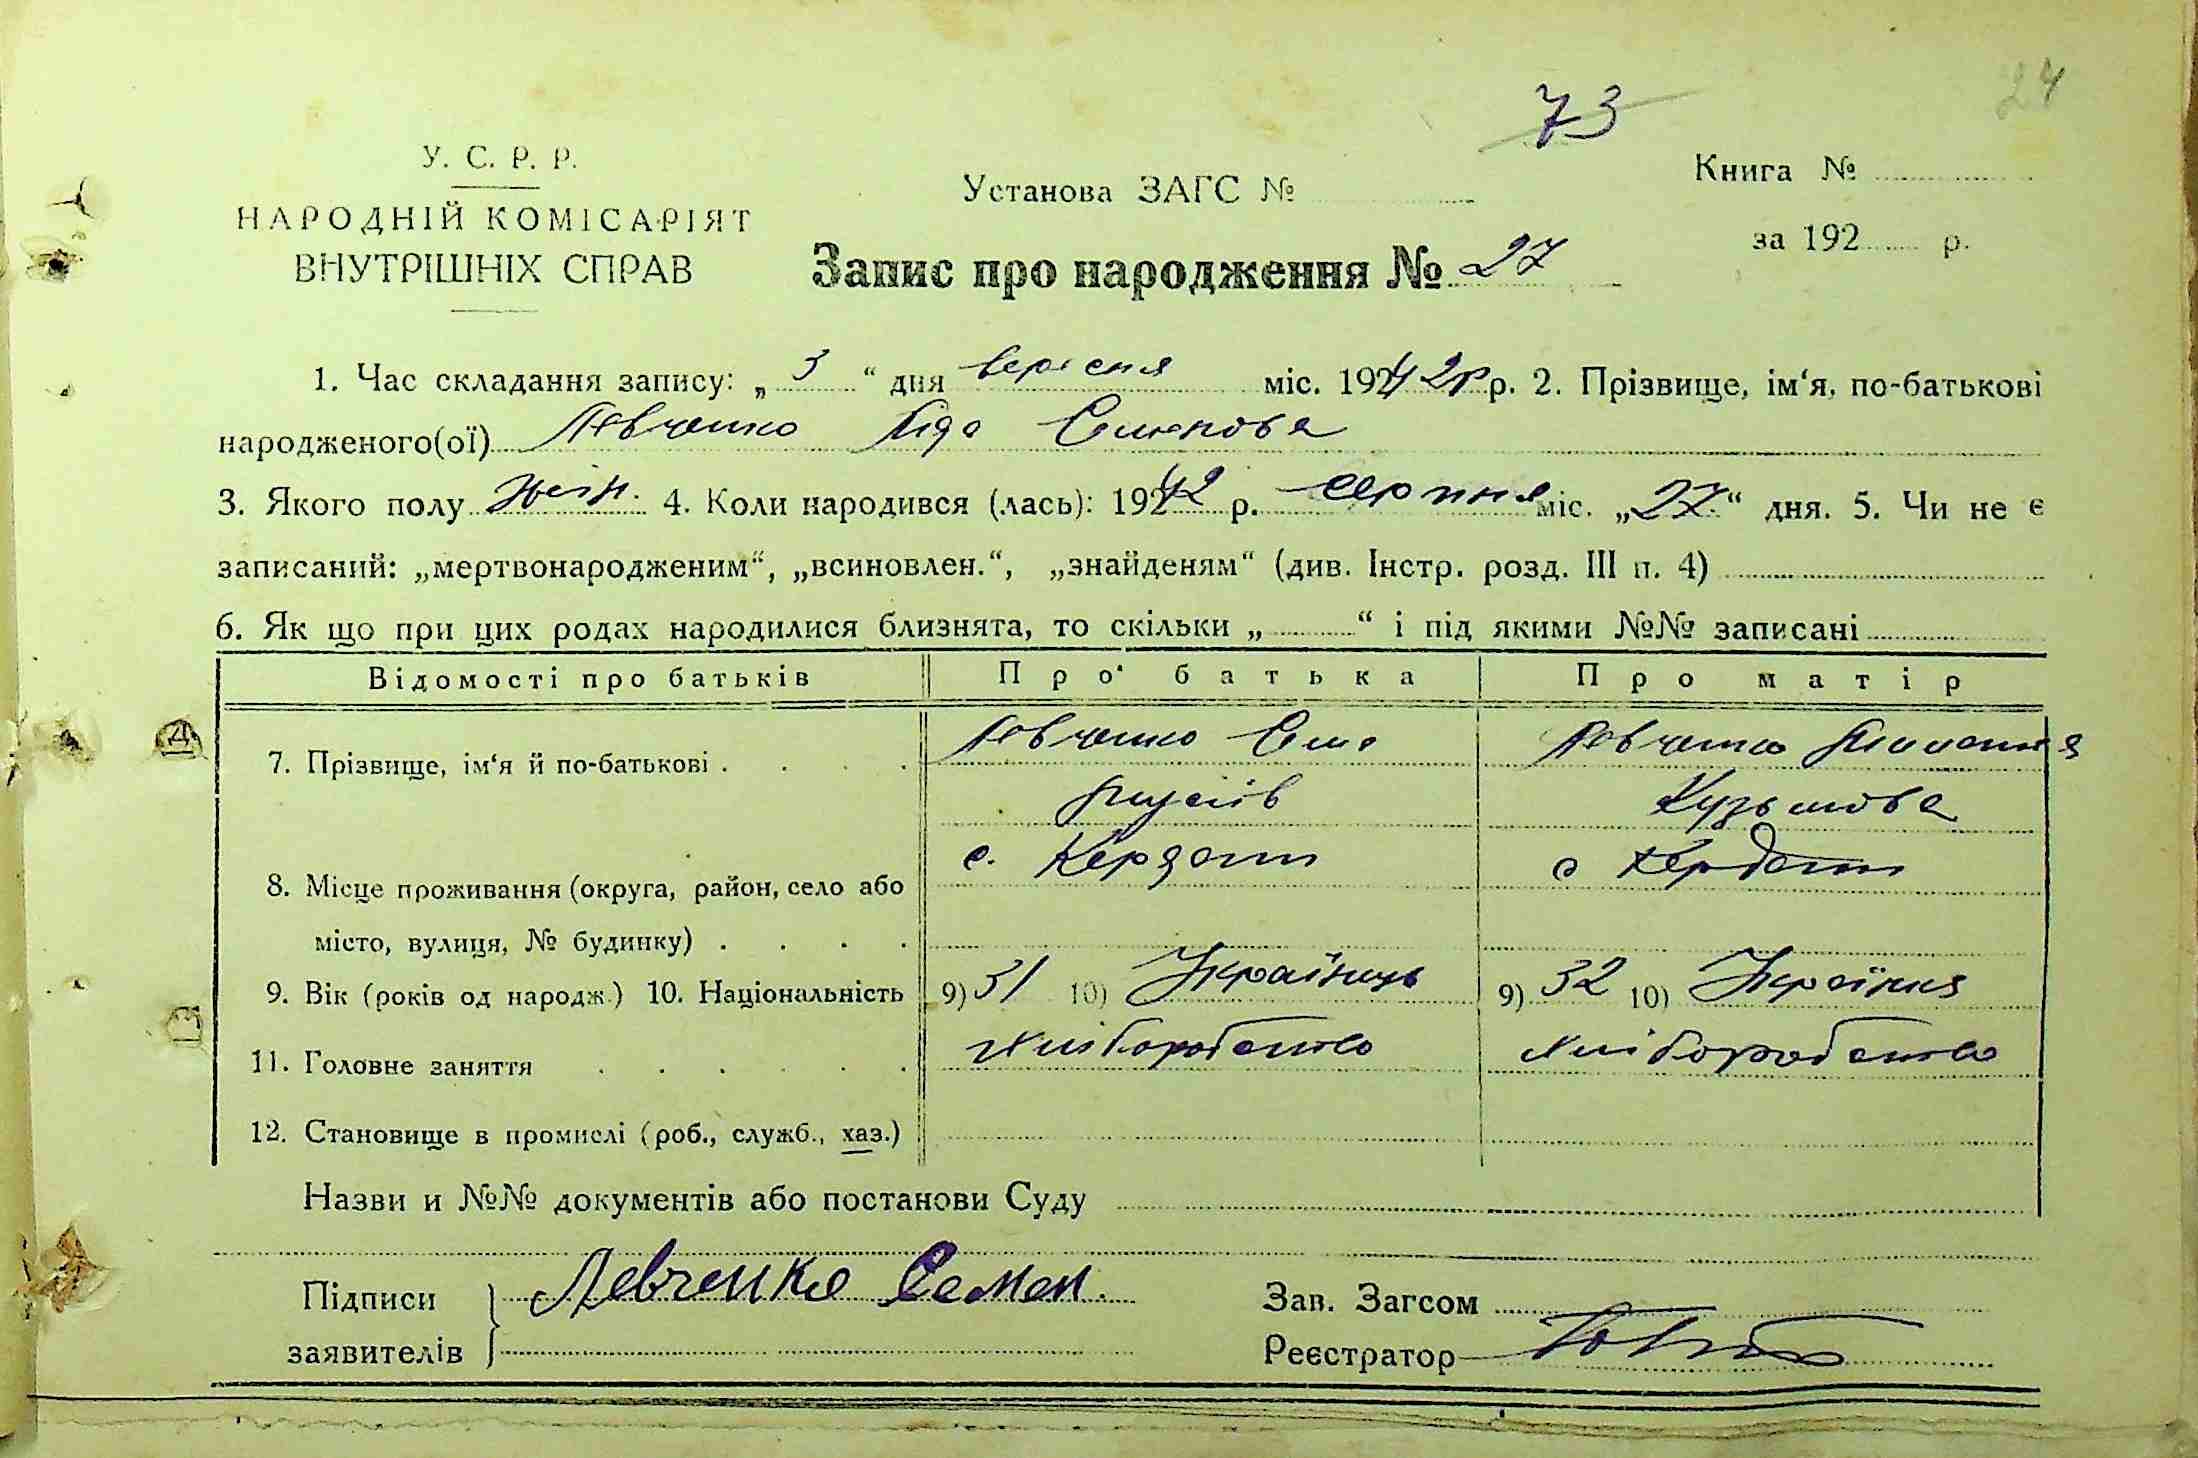 73
24
У. С. Р. Р.
НАРОДНІЙ КОМІСАРІЯТ
ВНУТРІШНІХ СПРАВ
Установа ЗАГС №
Книга №
за 192 р.
Запис про народження № 27
1. Час складання запису: „ 3 “ дня вересня міс. 1942р р. 2. Прізвище, ім‘я, по-батькові
народженого(ої) Левченко Ліда Семенова
3. Якого полу жін. 4. Коли народився (лась): 1942 р. серпня міс. „27“ дня. 5. Чи не є
записаний: „мертвонародженим“, „всиновлен.“, „знайденям“ (див. Інстр. розд. III п. 4)
6. Як що при цих родах народилися близнята, то скільки „ “ і під якими №№ записані
Відомості про батьків Про батька Про матір
7. Прізвище, ім‘я й по-батькові Левченко Левченко
Кузьмова
8. Місце проживання (округа, район, село або с. Кердани с Кердани
місто, вулиця, № будинку)
9. Вік (років од народж.) 10. Національність 9) 31 10) Українець 9) 32 10) Українка
11. Головне заняття хліборобство хліборобство
12. Становище в промислі (роб., служб., хаз.)
Назви и №№ документів або постанови Суду
Підписи Левченко Семен.
заявителів
Зав. Загсом
Реєстратор